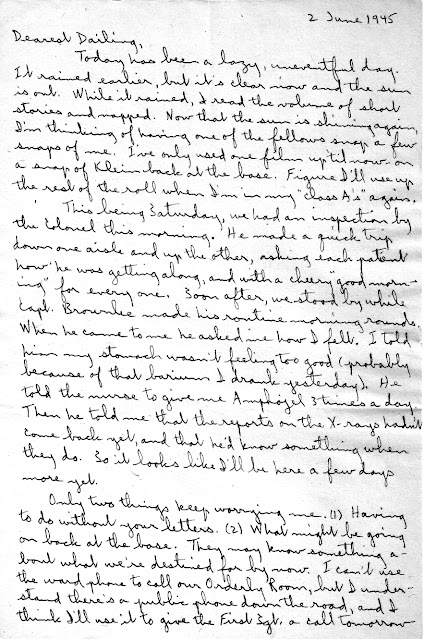 2 June 1945
Dearest Darling,
Today has been a lazy, uneventful day.
It rained earlier, but it's clear now and the sun
is out. While it rained, I read the volume of short
stories and napped. Now that the sun is shining again,
I'm thinking of having one of the fellows snap a few
snaps of me. I've only used one film up 'til now - on
a snap of Klein back at the base. Figure I'll use up
the rest of the roll when I'm in my "Class A's" again.
This being Saturday, we had an inspection by
the Colonel this morning. He made a quick trip
down one aisle and up the other, asking each patient
how he was getting along, and with a cheery "good morn-
ing" for every one. Soon after, we stood by while
Capt. Brownlee made his routine morning rounds.
When he came to me he asked me how I felt. I told
him my stomach wasn't feeling too good (probably
because of that barium I drank yesterday). He
told the nurse to give me Amphojel 3 times a day.
Then he told me that the reports on the X-rays hadn't
come back yet, and that he'd know something when
they do. So it looks like I'll be here a few days
more yet.
Only two things keep worrying me. (1) Having
to do without your letters. (2) What might be going
on back at the base. They may know something a-
bout what we're destined for by now. I can't use
the ward phone to call our Orderly Room, but I under-
stand there's a public phone down the road, and I
think I'll use it to give the First Sgt. a call tomorrow